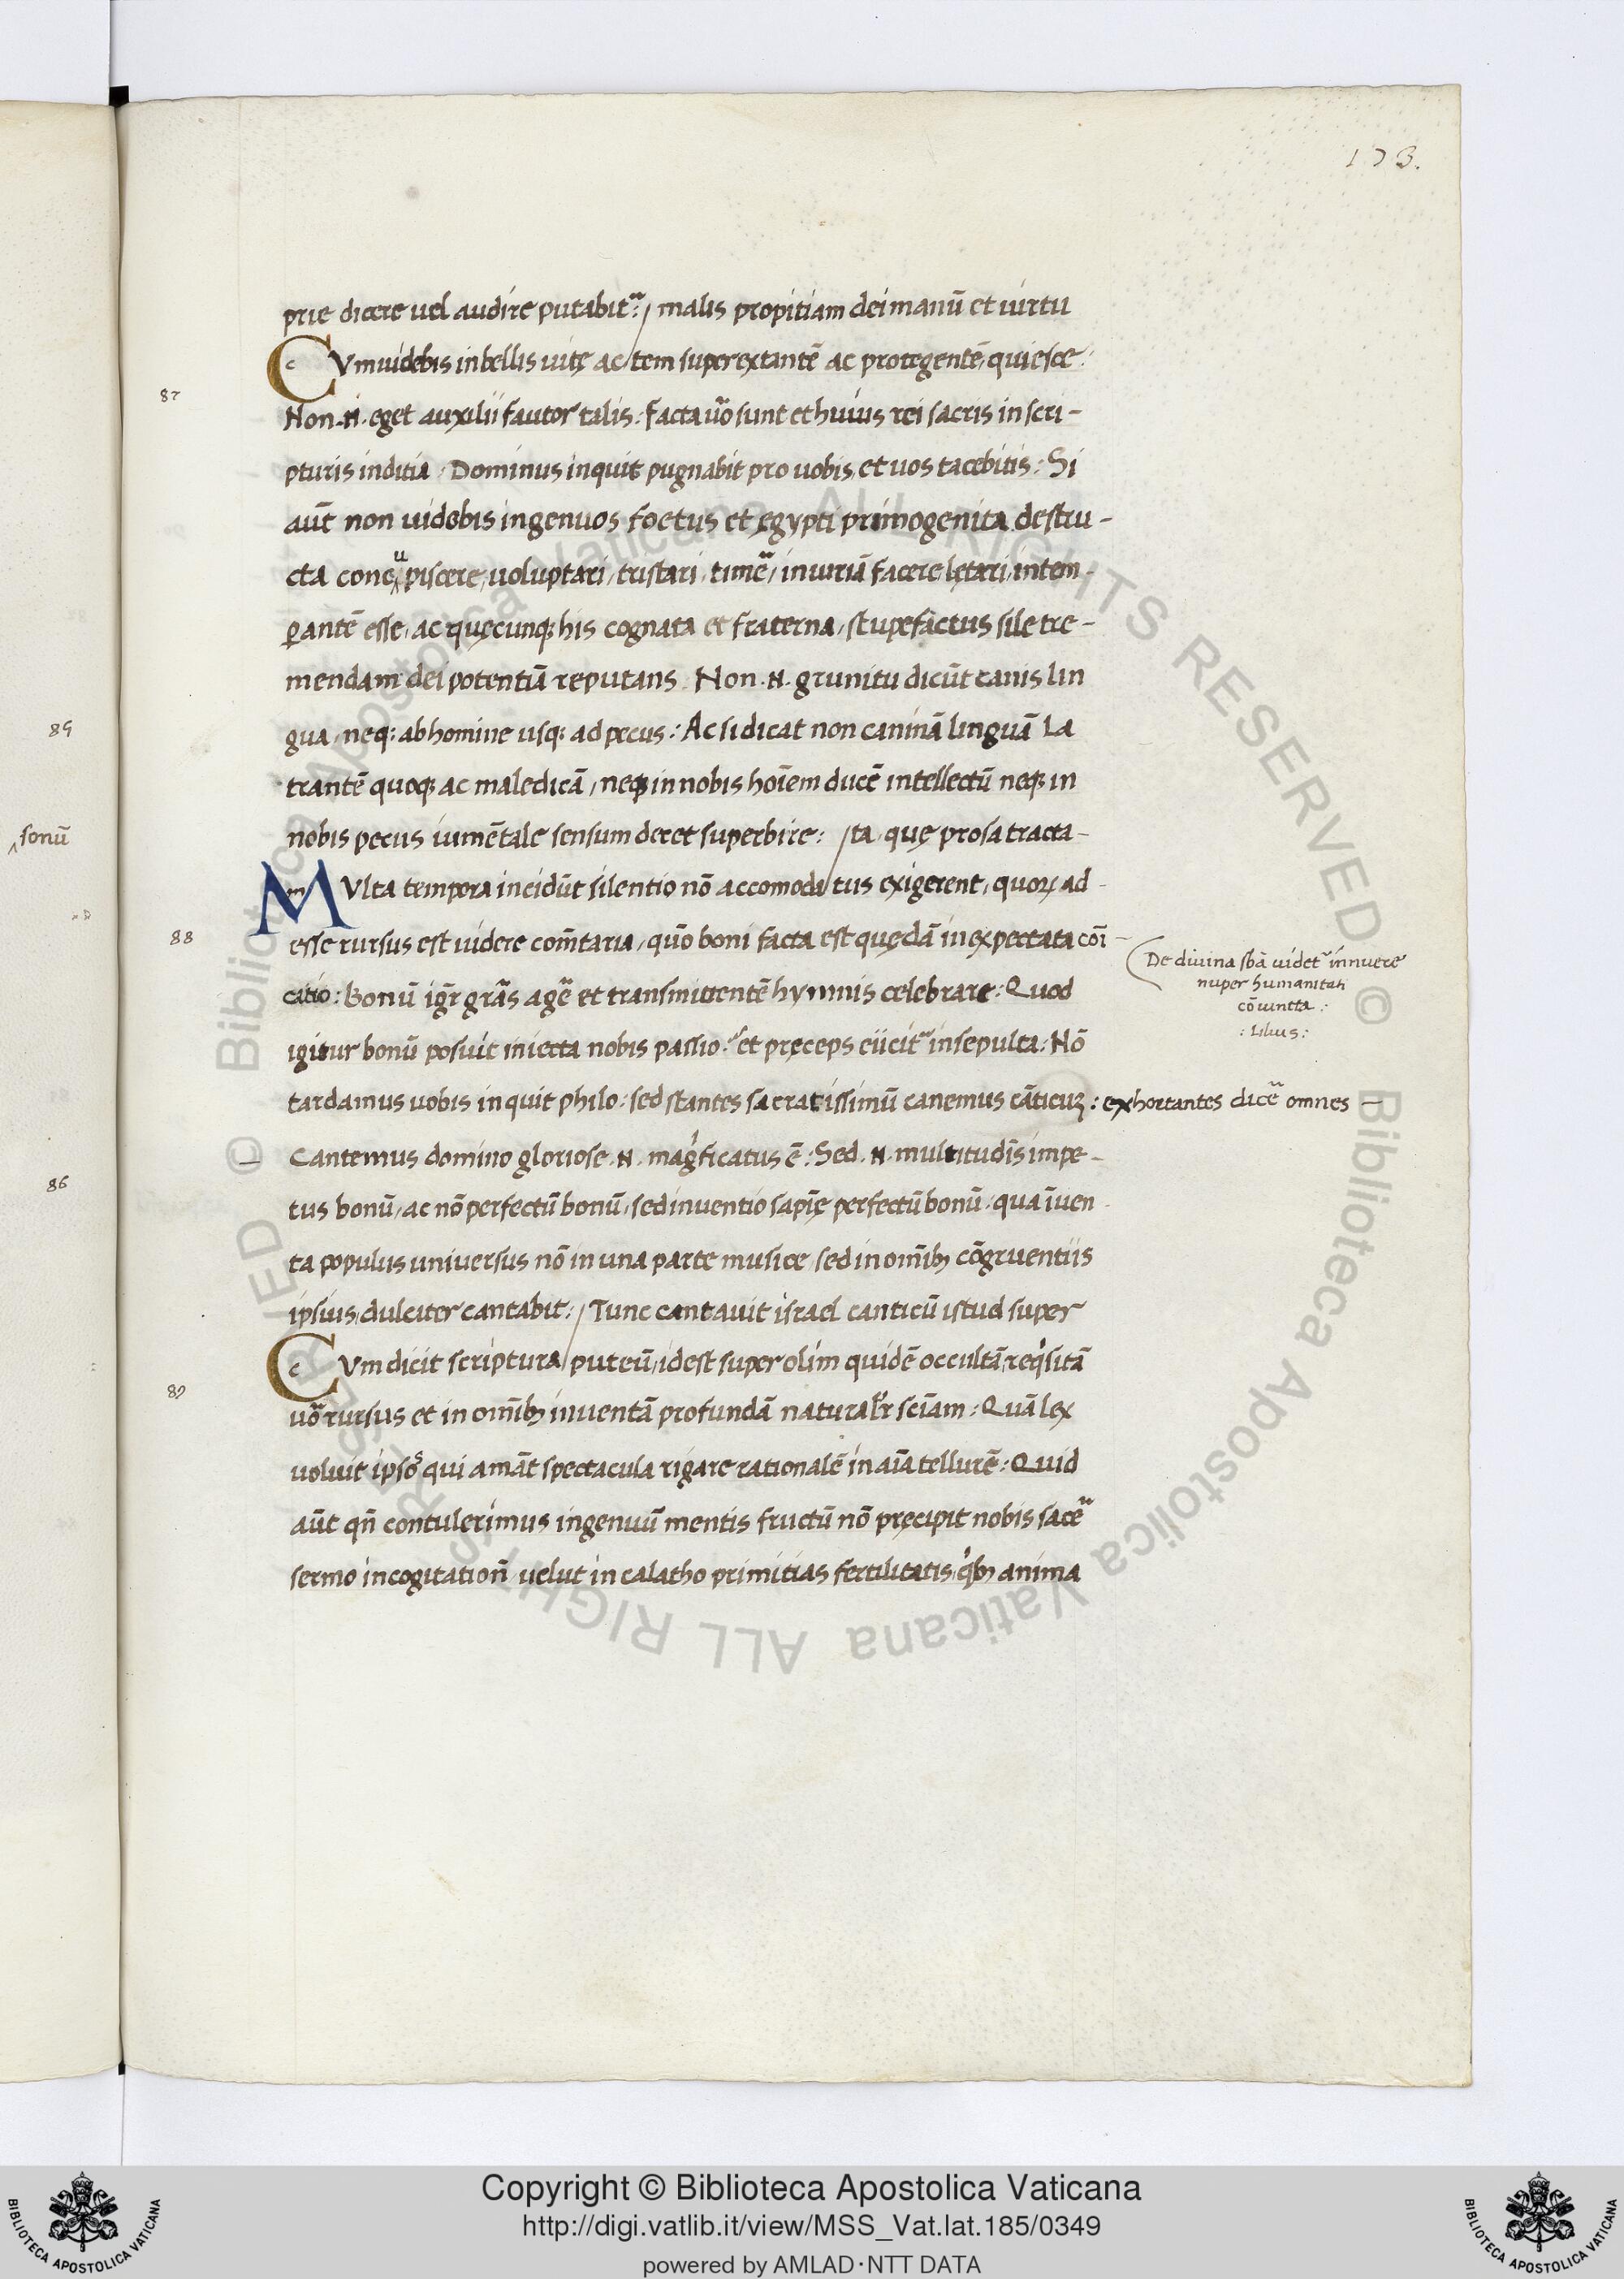 173.
prie dicere uel audire putabitᵃ: / malis propitiam dei manū et uirtu
CVm uidebis in bellis uitę ac / tem superextantē ac protegentē, quiesce:
87
Non .n. eget auxilii fautor talis: facta uō sunt et huius rei sacris in scri-
pturis inditia. Dominus inquit pugnabit pro uobis, et uos tacebitis: Si
aūt non uidebis ingenuos foetus et ęgypti primogenita destru-
cta concupiscere, uoluptari, tristari, timē, iniuriā facere lętari, intem-
ꝑantē esse, ac quęcunqꝫ his cognata et fraterna, stupefactus sile tre-
mendam dei potentiā reputans. Non .n. grunitu dicūt canis lin
gua, neqꝫ ab homine usqꝫ ad pecus: Ac si dicat non caninā linguā la
trantē quoqꝫ ac maledicā, neqꝫ in nobis hoīem ducē intellectū neqꝫ in
nobis pecus iumētale sensum decet superbire: / ta, quę prosa tracta-
MVlta tempora incidūt silentio nō accomoda / tus exigerent, quoꝝ ad-
88
esse rursus est uidere com̄taria, quō boni facta est quędā inexpectata cōi-
catio: Bonū igr̄ grās agē et transmittentē hymnis celebrare: Quod
igitur bonū posuit iniecta nobis passio: et pręceps eiicit insepulta: Nō
De diuina sbā uidet innuere
nuper humanitati
cōiuncta:
: Lilius:
tardamus uobis inquit philo: sed stantes sacratissimū canemus cāticuꝫ: exhortantes dicē omnes —
Cantemus domino gloriose .n. magͥficatus ē: Sed .n. multitudīs impe-
tus bonū, ac nō perfectū bonū, sed inuentio sapīę perfectū bonū, qua īuen-
ta populus uniuersus nō in una parte musice sed in om̄ibꝫ cōgruentiis
ipsius, dulciter cantabit: / Tunc cantauit israel canticū istud super
CVm dicit scriptura / puteū, id est super olim quidē occultā, reqͥsitā
89
uō rursus et in om̄ibꝫ inuentā profundā naturalr̄ sciam: Quā lex
uoluit ipsos qui amāt spectacula rigare rationalē in aīa tellurē: Quid
aūt qn̄ contulerimus ingenuū mentis fructū nō pręcipit nobis sacē
sermo in cogitationē uelut in calatho primitias fertilitatis, qͥbꝫ anima
85
sonū
86
Copyright © Biblioteca Apostolica Vaticana
http://digi.vatlib.it/view/MSS_Vat.lat.185/0349
powered by AMLAD·NTT DATA
BIBLIOTECA APOSTOLICA VATICANA
BIBLIOTECA APOSTOLICA VATICANA
© Biblioteca Apostolica Vaticana ALL RIGHTS RESERVED © Biblioteca Apostolica Vaticana ALL RIGHTS RESERVED